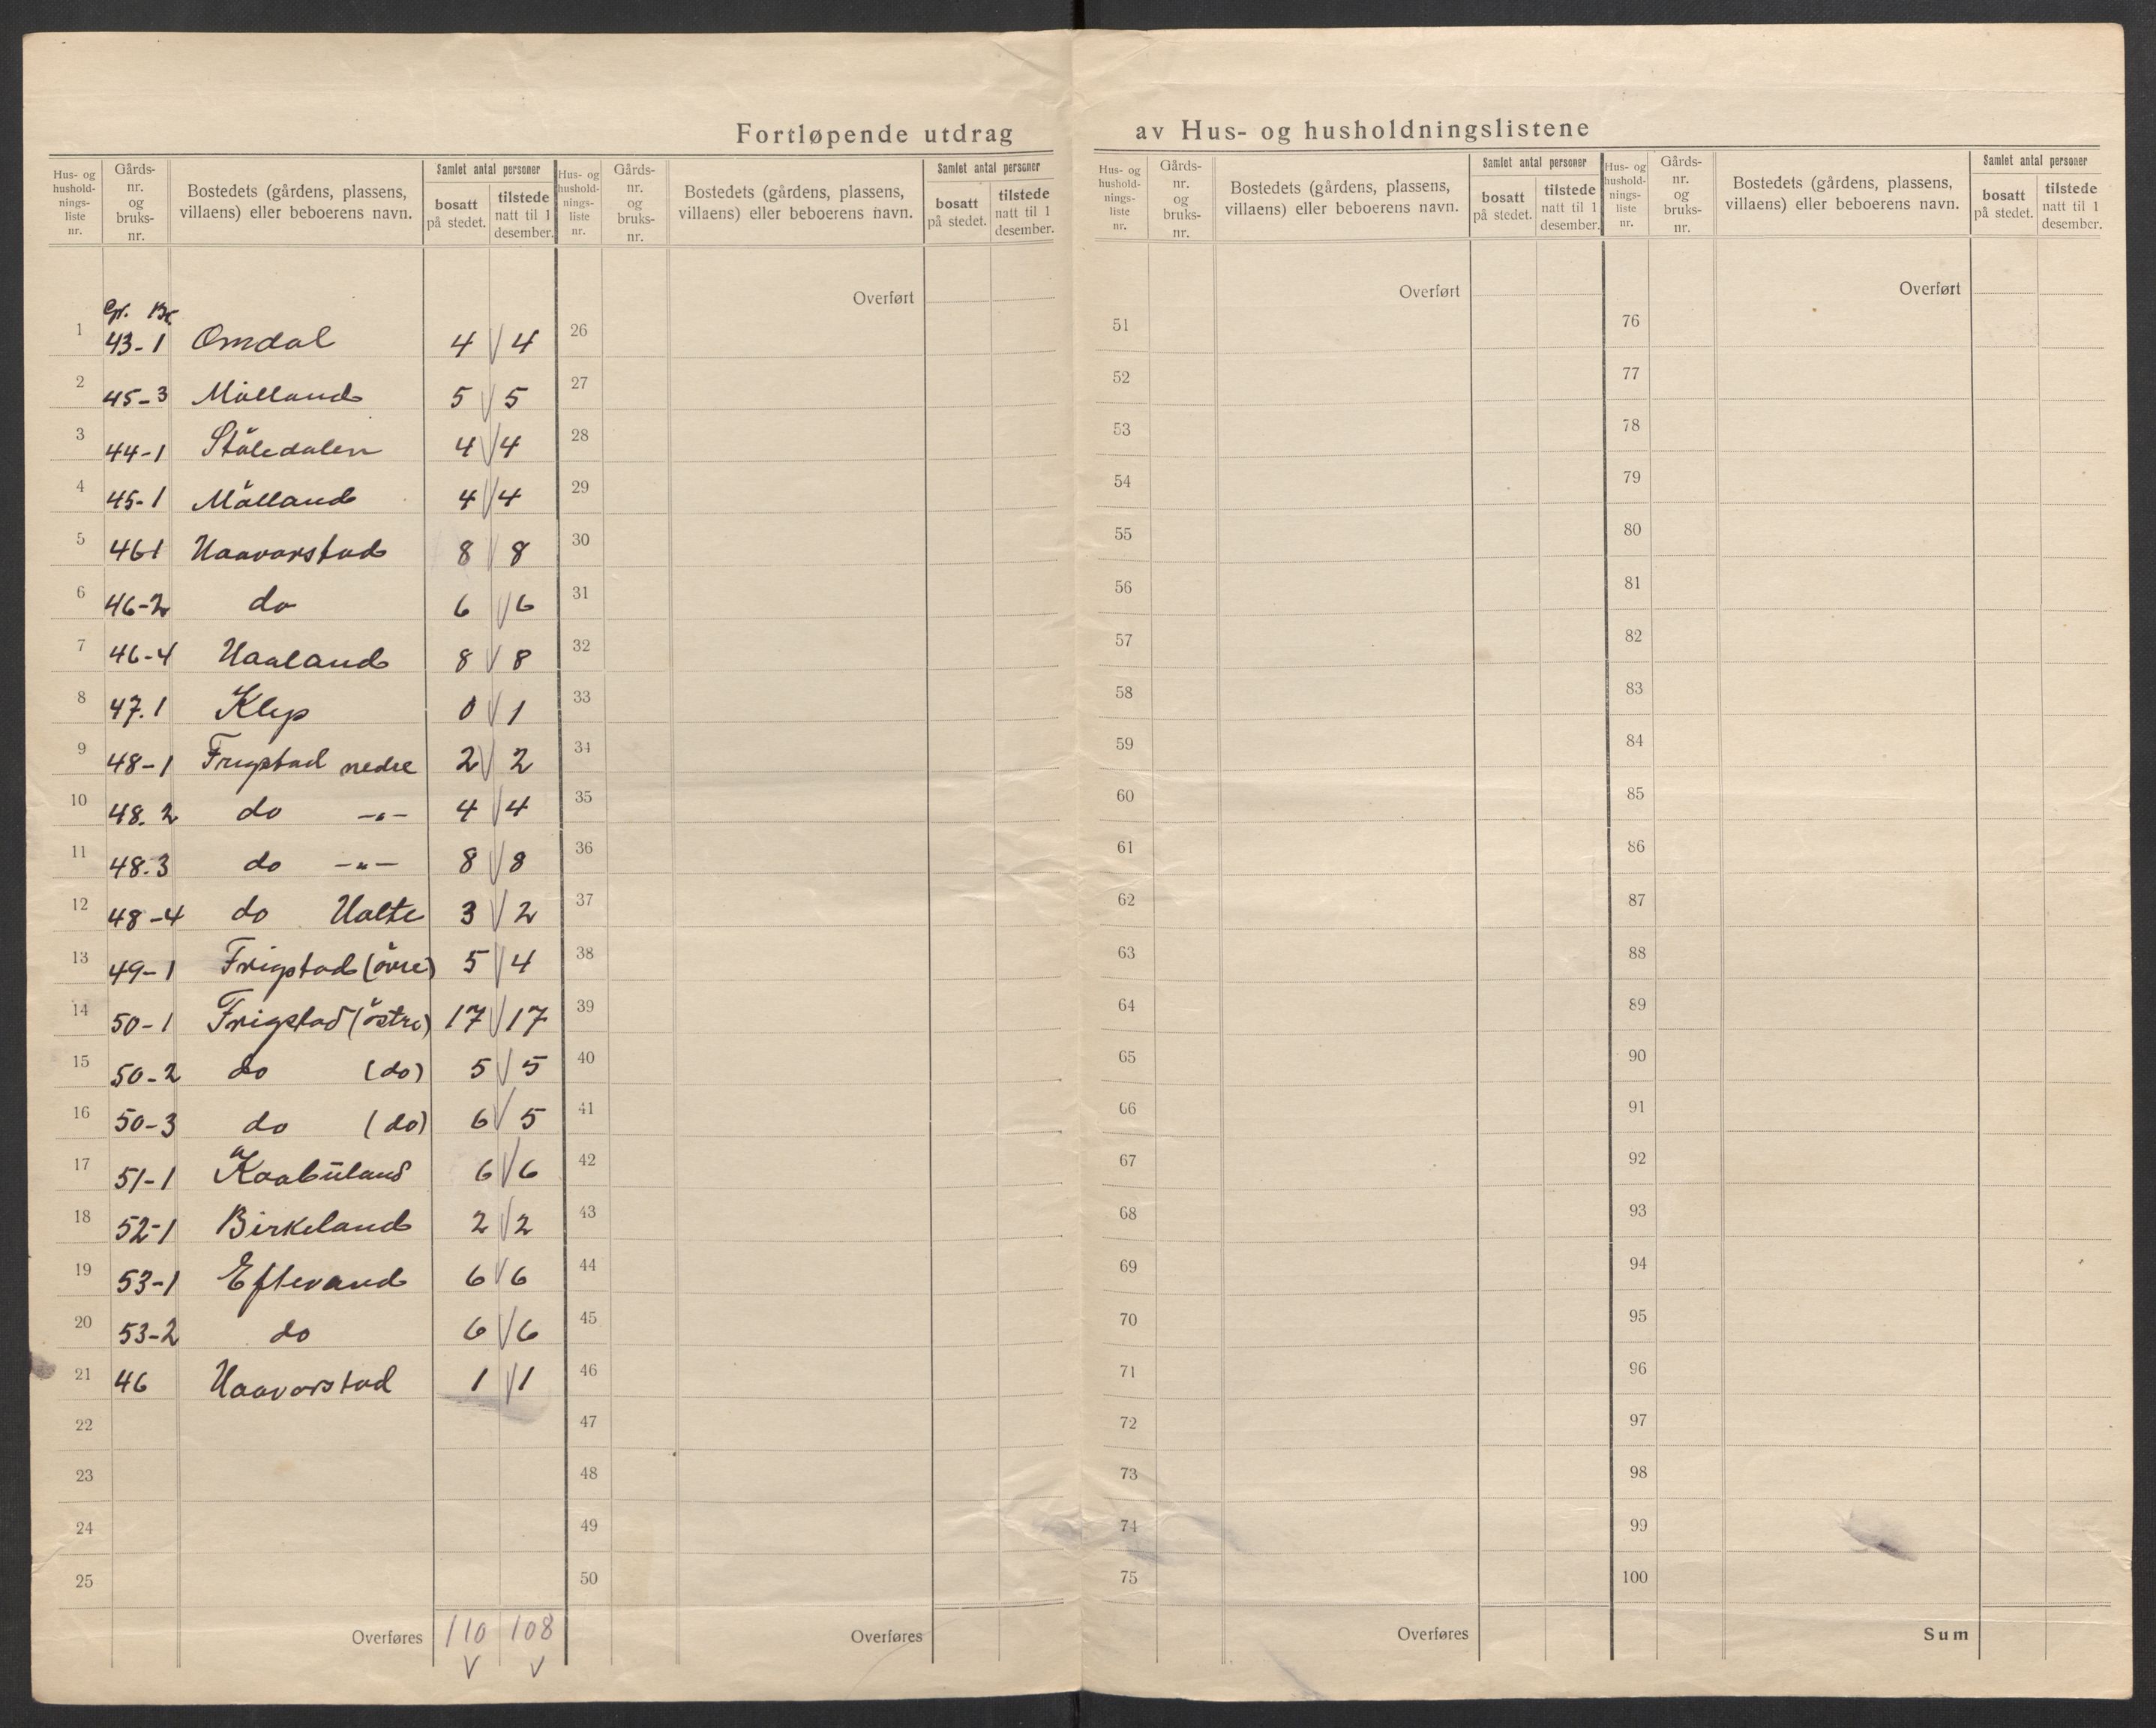 Fortløpende utdrag av Hus- og husholdningslistene
Hus- og hushold-nings-liste nr. | Gårds-nr. og bruks-nr. | Bostedets (gårdens, plassens, villaens) eller beboerens navn. | Samlet antal personer | bosatt på stedet. | tilstede natt til 1 desember.
Hus- og hushold-nings-liste nr. | Gårds-nr. og bruks-nr. | Bostedets (gårdens, plassens, villaens) eller beboerens navn. | Samlet antal personer | bosatt på stedet. | tilstede natt til 1 desember.
Hus- og hushold-nings-liste nr. | Gårds-nr. og bruks-nr. | Bostedets (gårdens, plassens, villaens) eller beboerens navn. | Samlet antal personer | bosatt på stedet. | tilstede natt til 1 desember.
Hus- og hushold-nings-liste nr. | Gårds-nr. og bruks-nr. | Bostedets (gårdens, plassens, villaens) eller beboerens navn. | Samlet antal personer | bosatt på stedet. | tilstede natt til 1 desember.
Gr. Br.
1 43-1 Omdal 4 4
2 45-3 Mölland 5 5
3 44-1 Ståledalen 4 4
4 45-1 Mölland 4 4
5 46 1 Haavarstad 8 8
6 46-2 do 6 6
7 46-4 Haaland 8 8
8 47.1 Klep 0 1
9 48-1 Frigstad nedre 2 2
10 48.2 do -"- 4 4
11 48.3 do -"- 8 8
12 48-4 do Holte 3 2
13 49-1 Frigstad (övre) 5 4
14 50-1 Frigstad (östre) 17 17
15 50-2 do (do) 5 5
16 50-3 do (do) 6 5
17 51-1 Kaabuland 6 6
18 52-1 Birkeland 2 2
19 53-1 Eftevand 6 6
20 53-2 do 6 6
21 46 Haavarstad 1 1
22
23
24
25
Overføres 110 108
Overført
26
27
28
29
30
31
32
33
34
35
36
37
38
39
40
41
42
43
44
45
46
47
48
49
50
Overføres
Overført
51
52
53
54
55
56
57
58
59
60
61
62
63
64
65
66
67
68
69
70
71
72
73
74
75
Overføres
Overført
76
77
78
79
80
81
82
83
84
85
86
87
88
89
90
91
92
93
94
95
96
97
98
99
100
Sum